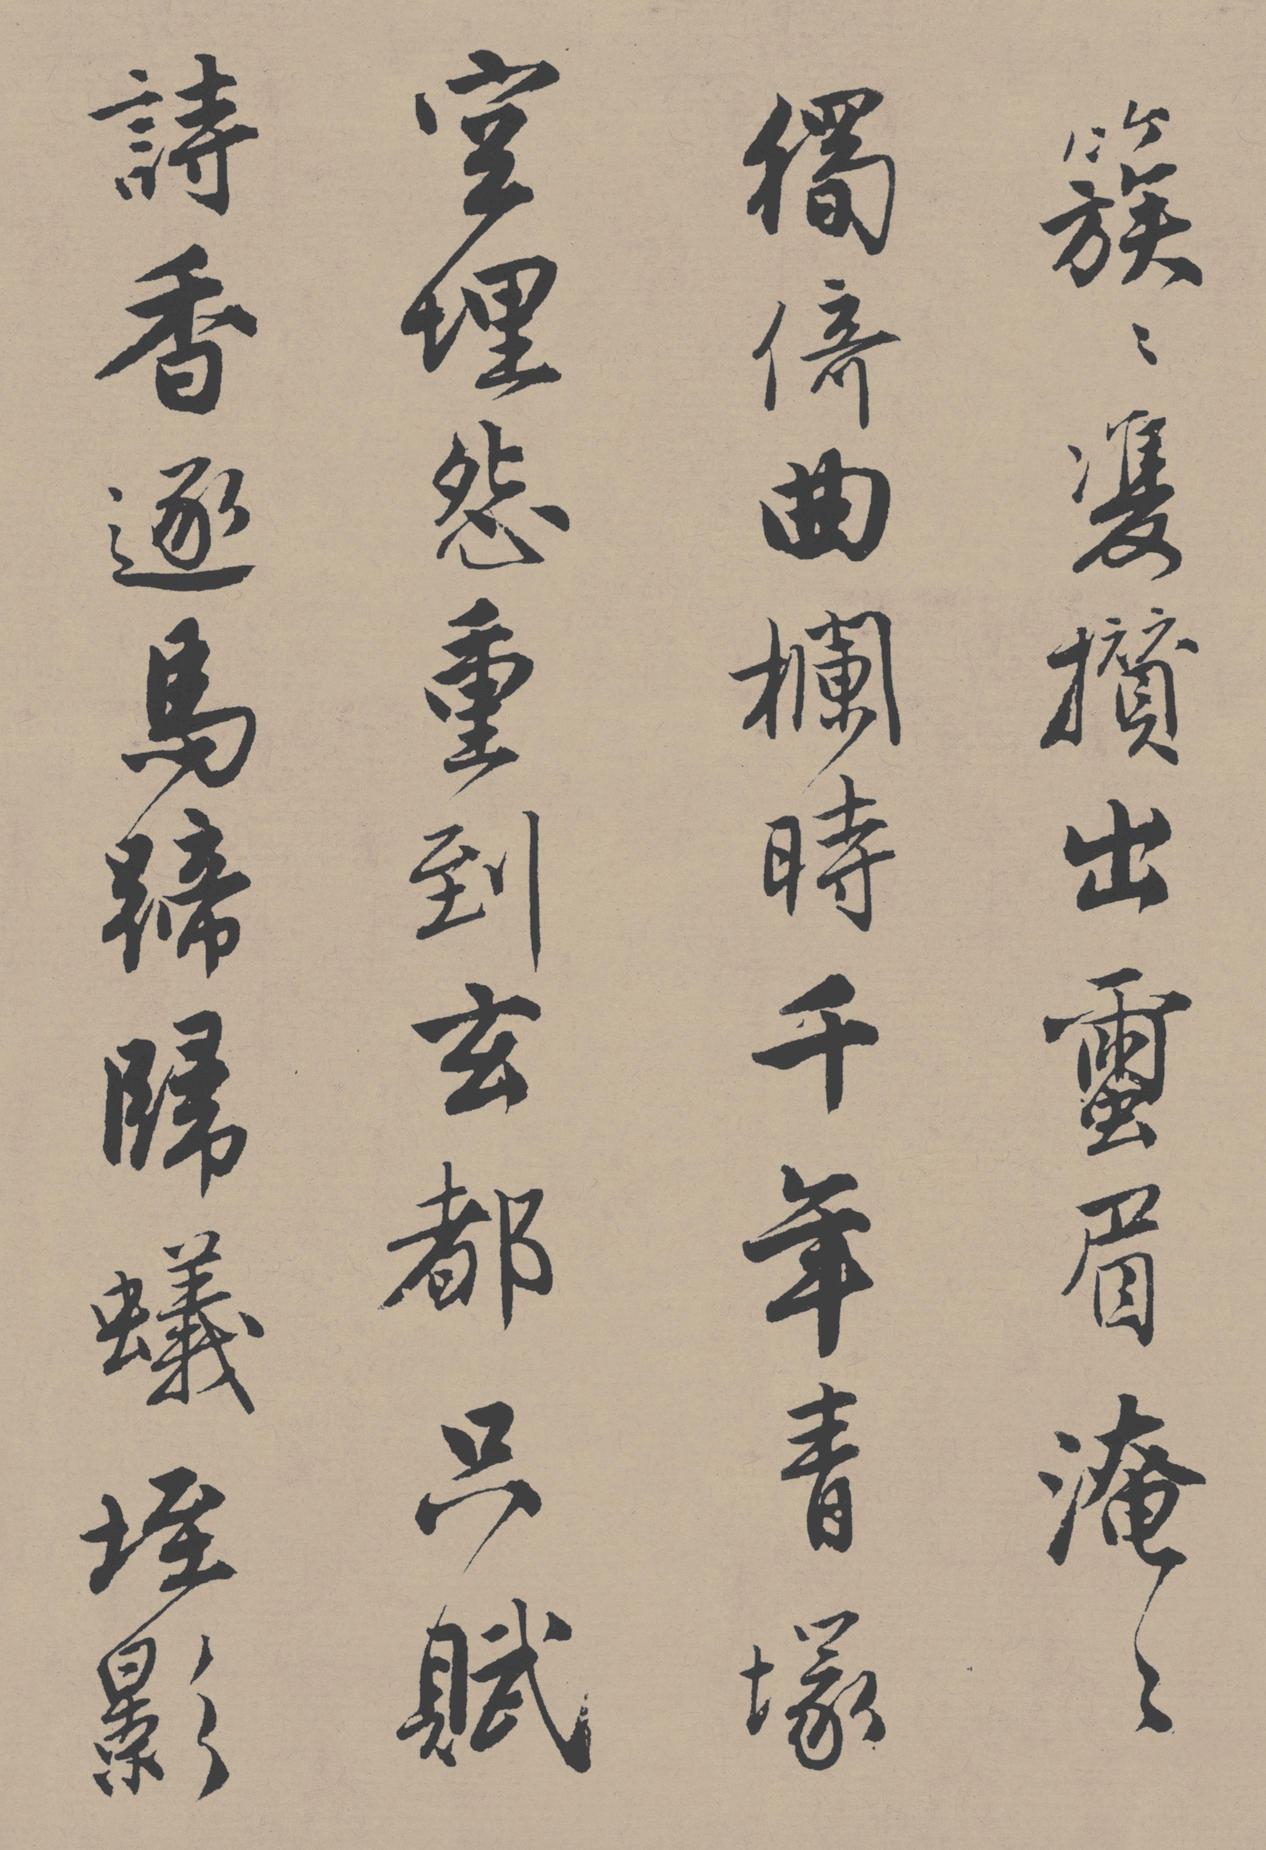 簇〻雙攢出蠶眉淹〻
獨倚曲欄時千年青塚
空埋怨重到玄都只賦
詩香逐馬蹄歸蟻垤影